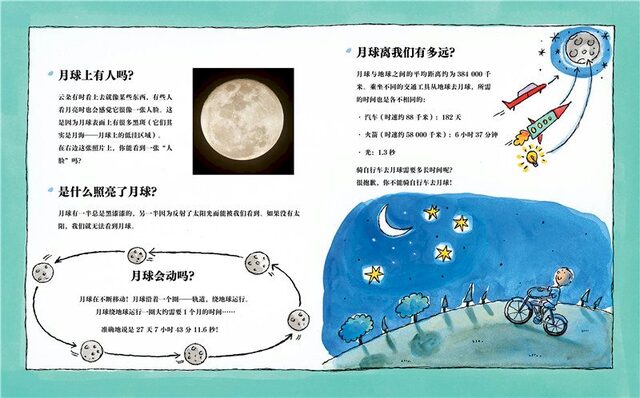 月球上有人吗?
云朵有时看上去就像某些东西，有些人
看月亮时也会感觉它很像一张人脸。这
是因为月球表面上有很多黑斑（它们其
实是月海——月球上的低洼区域）。
在右边这张照片上，你能看到一张“人
脸”吗?
是什么照亮了月球?
月球有一半总是黑漆漆的，另一半因为反射了太阳光而能被我们看到。如果没有太
阳，我们就无法看到月球。
月球会动吗?
月球在不断移动！月球沿着一个圈——轨道，绕地球运行。
月球绕地球运行一圈大约需要 1 个月的时间……
准确地说是 27 天 7 小时 43 分 11.6 秒！
月球离我们有多远?
月球与地球之间的平均距离约为 384 000 千
米。乘坐不同的交通工具从地球去月球，所需
的时间也是各不相同的:
· 汽车（时速约 88 千米）: 182 天
· 火箭（时速约 58 000 千米）: 6 小时 37 分钟
· 光: 1.3 秒
骑自行车去月球需要多长时间呢?
很抱歉，你不能骑自行车去月球！